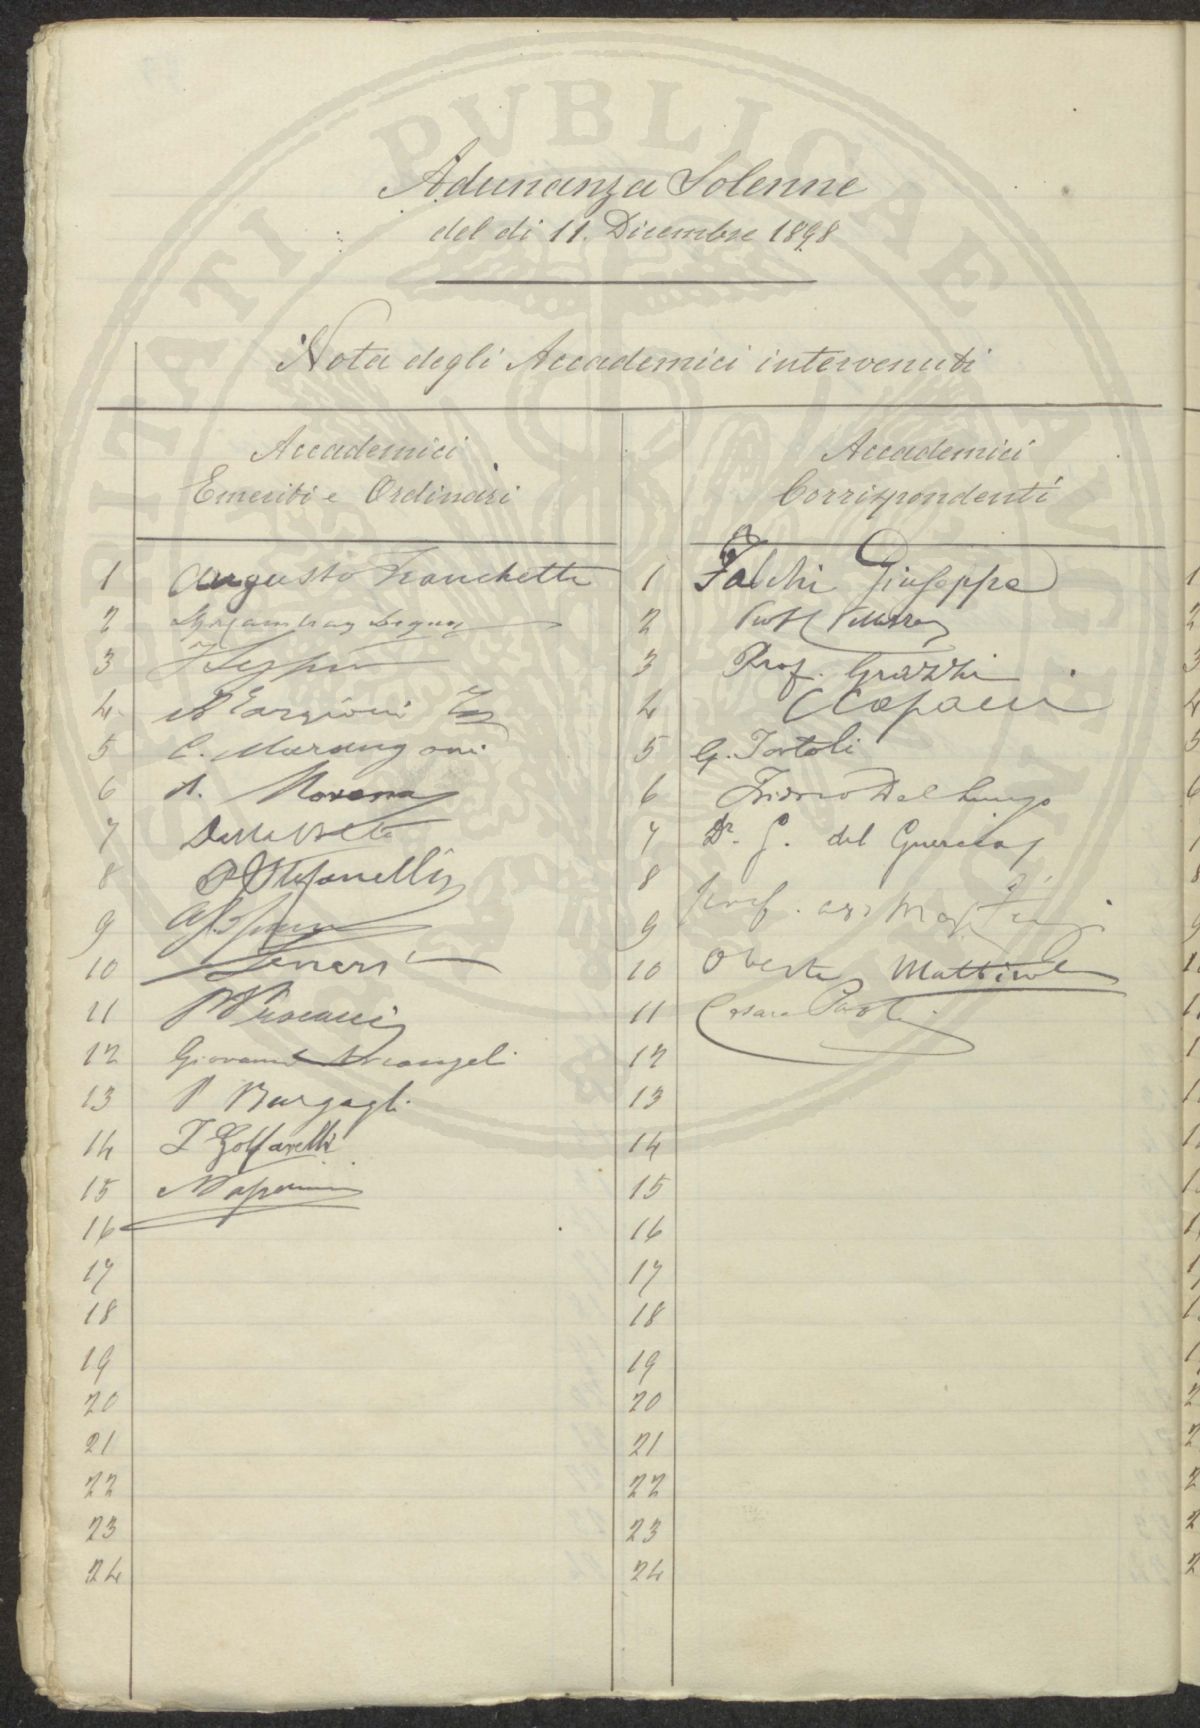 PROSPERITATI PVBLICAE AVGENDAE
Adunanza Solenne
del dì 11. Dicembre 1898
Nota degli Accademici intervenuti
Accademici
Emeriti e Ordinari
1 Augusto Franchetti
2
3
4 A Targioni Tzz
5 C. Marangoni
6 A.
7 Della Volta
8 P Stefanelli
9
10
11
12 Giovanni Arcangeli
13 P Bargagli
14 I Golfarelli
15 N Passerini
16
17
18
19
20
21
22
23
24
Accademici
Corrispondenti
1 Falchi Giuseppe
2 Prof
3 Prof. Grazzi
4 Capacci
5 G. Tortoli
6 Isidoro Del Lungo
7 Dr. G. del Guercio
8
9 prof.
10 Oreste Mattirolo
11 Cesare Paoli
12
13
14
15
16
17
18
19
20
21
22
23
24